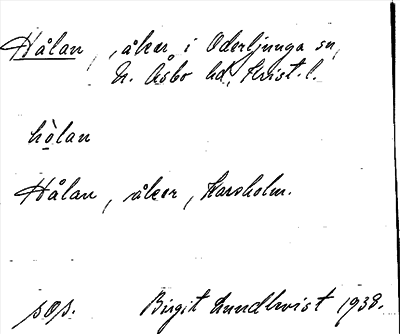 Hålan, åker i Oderljunga sn,
N. Åsbo hd, Krist. l.
hòlan
Hålan, åker, Karsholm.
sos.
Birgit Lundkvist 1938.